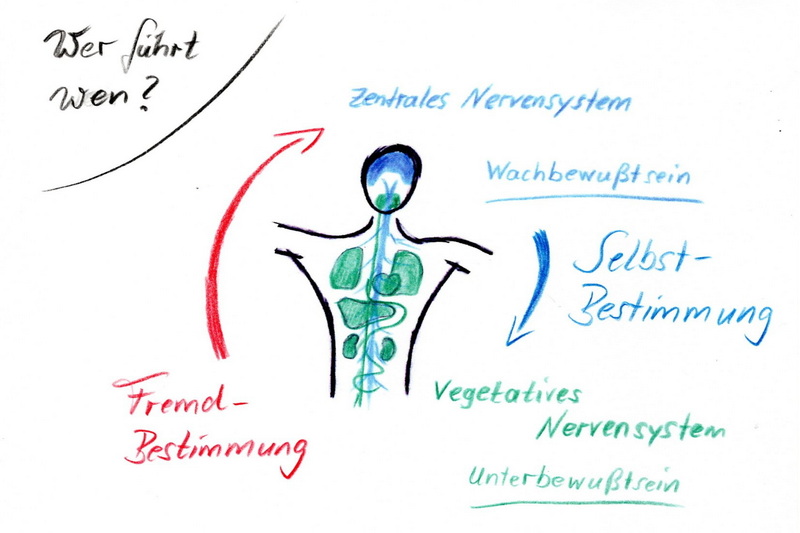 Wer führt
wen?
Zentrales Nervensystem
Wachbewußtsein
Selbst-
Bestimmung
Fremd-
Bestimmung
Vegetatives
Nervensystem
Unterbewußtsein